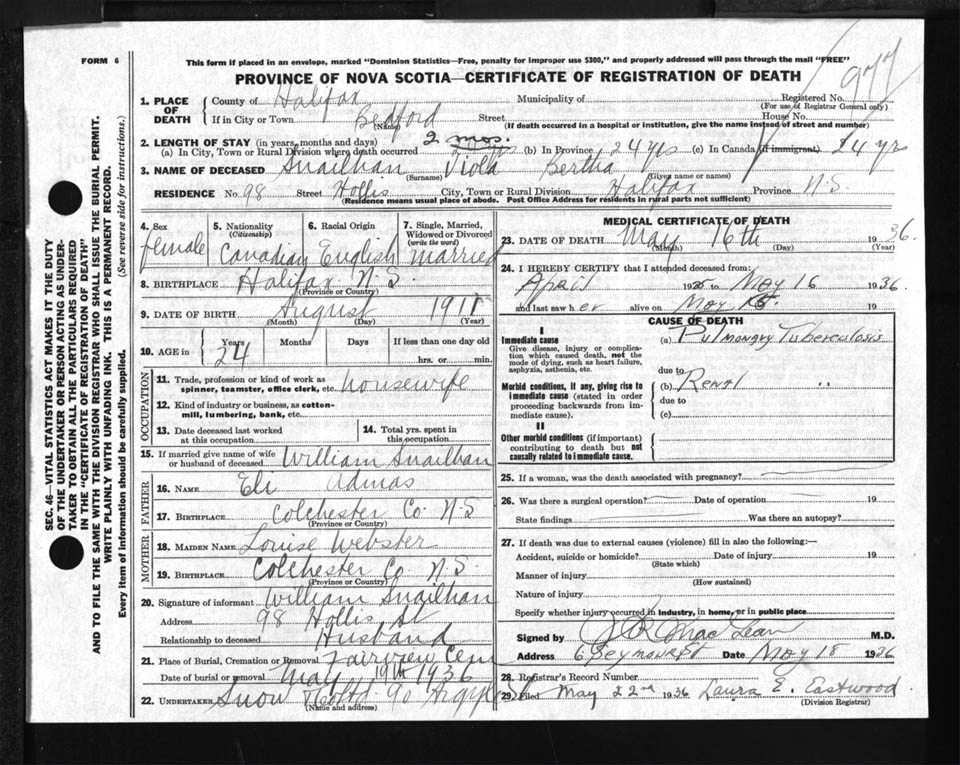 FORM 6
This form if placed in an envelope, marked "Dominion Statistics—Free, penalty for improper use $300," and properly addressed will pass through the mail "FREE"
977
PROVINCE OF NOVA SCOTIA—CERTIFICATE OF REGISTRATION OF DEATH
1. PLACE OF DEATH
County of Halifax Municipality of Registered No.
(For use of Registrar General only)
If in City or Town Bedford Street House No.
(Name) (If death occurred in a hospital or institution, give the name instead of street and number)
2. LENGTH OF STAY (in years, months and days) 2 mos.
(a) In City, Town or Rural Division where death occurred (b) In Province 24 yrs (c) In Canada (if immigrant) 24 yrs
3. NAME OF DECEASED Snailhan Viola Bertha
(Surname) (Given name or names)
RESIDENCE No 98 Street Hollis City, Town or Rural Division Halifax Province N.S.
(Residence means usual place of abode. Post Office Address for residents in rural parts not sufficient)
4. Sex female
5. Nationality (Citizenship) Canadian
6. Racial Origin English
7. Single, Married, Widowed or Divorced (write the word) married
8. BIRTHPLACE Halifax N.S.
(Province or Country)
9. DATE OF BIRTH August 1911
(Month) (Day) (Year)
10. AGE in Years 24 Months Days If less than one day old
hrs. or min.
OCCUPATION
11. Trade, profession or kind of work as spinner, teamster, office clerk, etc. housewife
12. Kind of industry or business, as cotton-mill, lumbering, bank, etc.
13. Date deceased last worked at this occupation
14. Total yrs. spent in this occupation
15. If married give name of wife or husband of deceased William Snailhan
FATHER
16. NAME Eli Admas
17. BIRTHPLACE Colchester Co. N.S
(Province or Country)
MOTHER
18. MAIDEN NAME Louise Webster
19. BIRTHPLACE Colchester Co. N.S.
(Province or Country)
20. Signature of informant William Snailhan
Address 98 Hollis St
Relationship to deceased Husband
21. Place of Burial, Cremation or Removal Fairview Cem
Date of burial or removal May 19th 1936
22. UNDERTAKER Snow 90 Argyle
(Name and address)
MEDICAL CERTIFICATE OF DEATH
23. DATE OF DEATH May 16th 1936.
(Month) (Day) (Year)
24. I HEREBY CERTIFY that I attended deceased from:
April 193 to May 16 1936
and last saw her alive on May 19
CAUSE OF DEATH
I
Immediate cause
Give disease, injury or complication which caused death, not the mode of dying, such as heart failure, asphyxia, asthenia, etc.
(a) Pulmonary Tuberculosis
due to
Morbid conditions, if any, giving rise to immediate cause (stated in order proceeding backwards from immediate cause).
(b) Renal " "
due to
(c)
II
Other morbid conditions (if important) contributing to death but not causally related to immediate cause.
25. If a woman, was the death associated with pregnancy?
26. Was there a surgical operation? Date of operation 19
State findings Was there an autopsy?
27. If death was due to external causes (violence) fill in also the following:—
Accident, suicide or homicide? Date of injury 19
(State which)
Manner of injury
(How sustained)
Nature of injury
Specify whether injury occurred in industry, in home, or in public place
Signed by MacLean M.D.
Address 6 Seymour St Date May 18 1936
28. Registrar's Record Number
29. Filed May 22nd 1936 Laura E. Eastwood
(Division Registrar)
SEC. 46—VITAL STATISTICS ACT MAKES IT THE DUTY
OF THE UNDERTAKER OR PERSON ACTING AS UNDER-
TAKER TO OBTAIN ALL THE PARTICULARS REQUIRED
IN THE "CERTIFICATE OF REGISTRATION OF DEATH"
AND TO FILE THE SAME WITH THE DIVISION REGISTRAR WHO SHALL ISSUE THE BURIAL PERMIT.
WRITE PLAINLY WITH UNFADING INK. THIS IS A PERMANENT RECORD.
Every item of information should be carefully supplied. (See reverse side for instructions.)